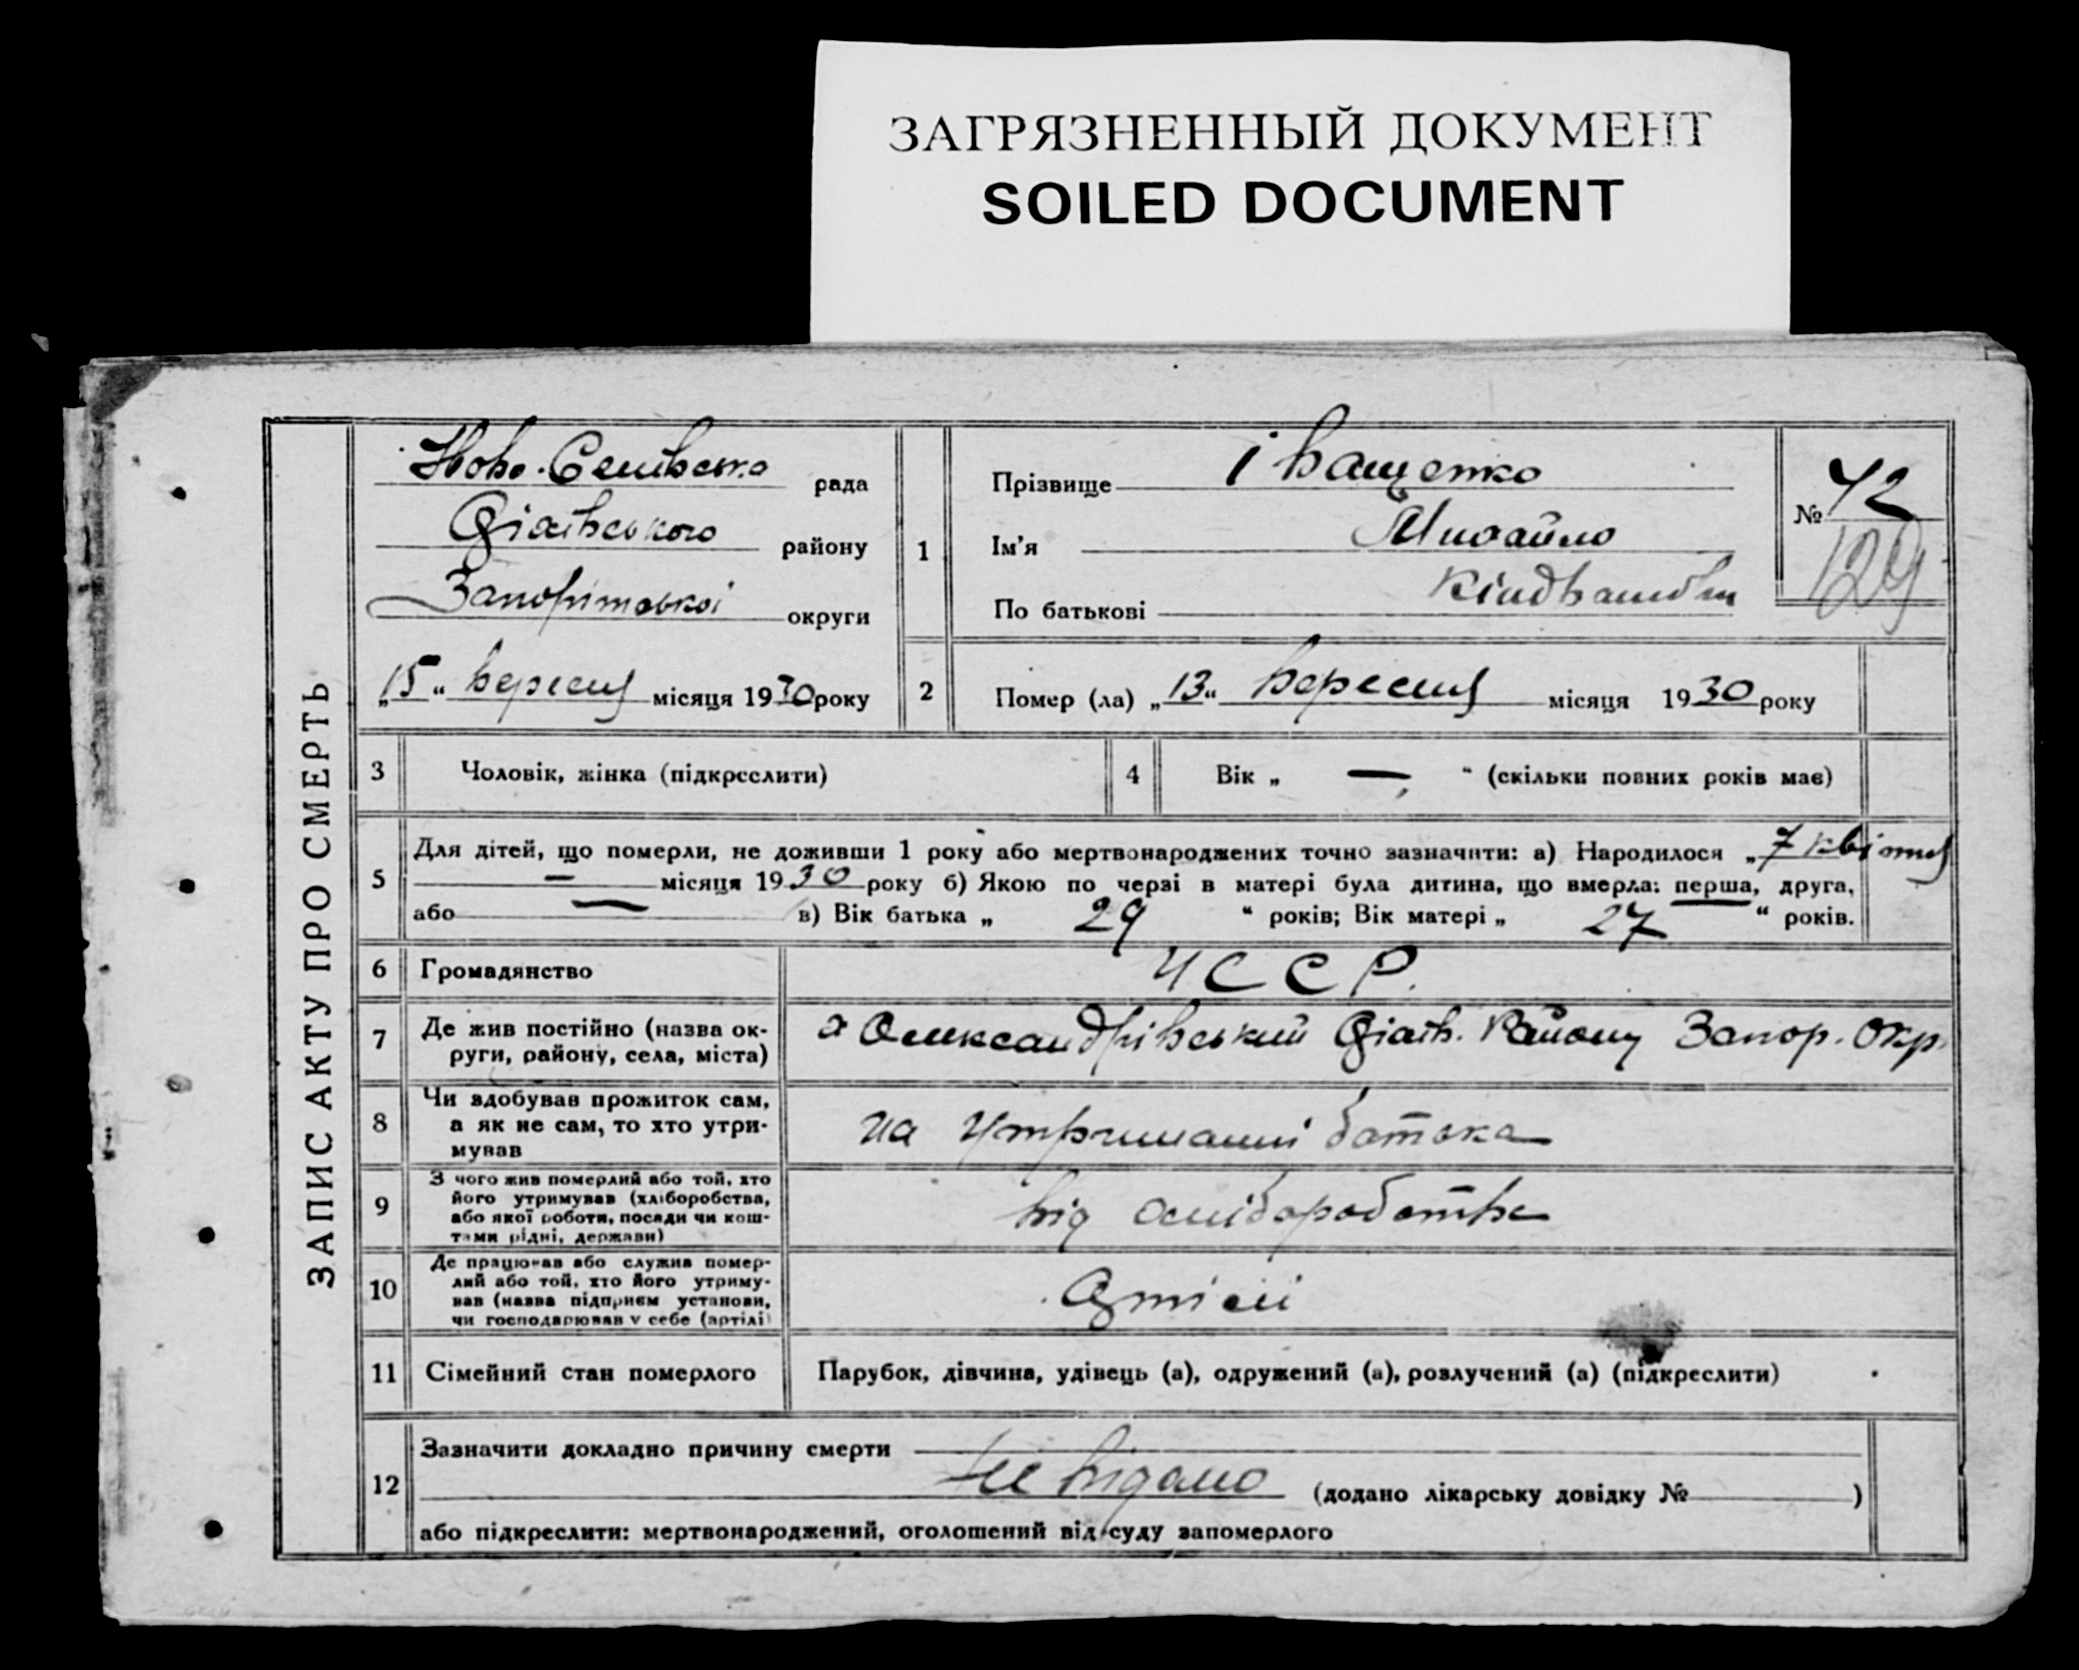 ЗАГРЯЗНЕННЫЙ ДОКУМЕНТ
SOILED DOCUMENT
ЗАПИС АКТУ ПРО СМЕРТЬ
Ново. рада
району
округи
„15“ вересня місяця 1930 року
1
Прізвище Іващенко
Ім'я Михайло
По батькові
№ 42
129
2
Помер (ла) „13“ вересня місяця 1930 року
3 Чоловік, жінка (підкреслити)
4 Вік „ — “ (скільки повних років має)
5
Для дітей, що померли, не доживши 1 року або мертвонароджених точно зазначити: а) Народилося „7 квітня
— місяця 1930 року б) Якою по черзі в матері була дитина, що вмерла: перша, друга,
або — в) Вік батька „ 29 “ років; Вік матері „ 27 “ років.
6 Громадянство УССР.
7
Де жив постійно (назва ок-
руги, району, села, міста)
х Олександрівський району Запор. Окр.
8
Чи здобував прожиток сам,
а як не сам, то хто утри-
мував
на утриманні батька
9
З чого жив померлий або той, хто
його утримував (хліборобства,
або якої роботи, посади чи кош-
тами рідні, держави)
від
10
Де працював або служив помер-
лий або той, хто його утриму-
вав (назва підприєм установи,
чи господарював у себе (артілі)
11 Сімейний стан померлого Парубок, дівчина, удівець (а), одружений (а), розлучений (а) (підкреслити)
12
Зазначити докладно причину смерти
Не відомо (додано лікарську довідку № )
або підкреслити: мертвонароджений, оголошений від суду запомерлого